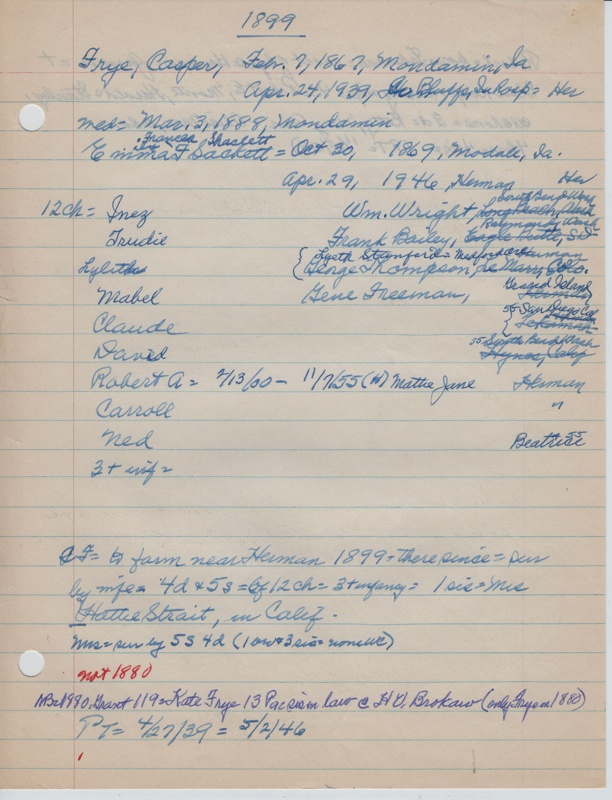 1899
Frye, Casper, Feb. 7, 1867, Mondamin, Ia.
Apr. 24, 1939, Bluffs, Ia Hosp = Her
med = Mar. 3, 1888, Mondamin
Frances Shackett
Emma F Sackett = Oct 30, 1869, Modale, Ia.
Apr. 29, 1946, Herman Her
12 ch = Inez Wm. Wright, South Bend Wash Long Beach, Wash Raymond, Wash
Trudie Frank Bailey, Eagle Butte, S.D
Lyeth Stanford = Medford Ore
George Thompson, Le Mar, Colo.
Mabel Gene Freeman, Grand Island Herman
Claude 55 San Diego Cal Tekamah
David 55 South Bend Wash Hynes, Calif
Robert A = 2/13/00 - 11/7/55 (H) Mattie Jane Herman
Carroll "
Ned Beatrice 55
3 + inf =
CF = to farm near Herman 1899 = there since = sur
by wife = 4d & 5s = (of 12 ch = 3 + infancy = 1 sis = Mrs
Hattie Strait, in Calif.
Mrs = sur by 5S 4d (1 bro & 3 sis = none WC)
not 1880
NB = 1880 Grant 119 = Kate Frye 13 Pa sis in law c H O, Brokaw (only Frye in 1880)
PT = 4/27/39 = 5/2/46